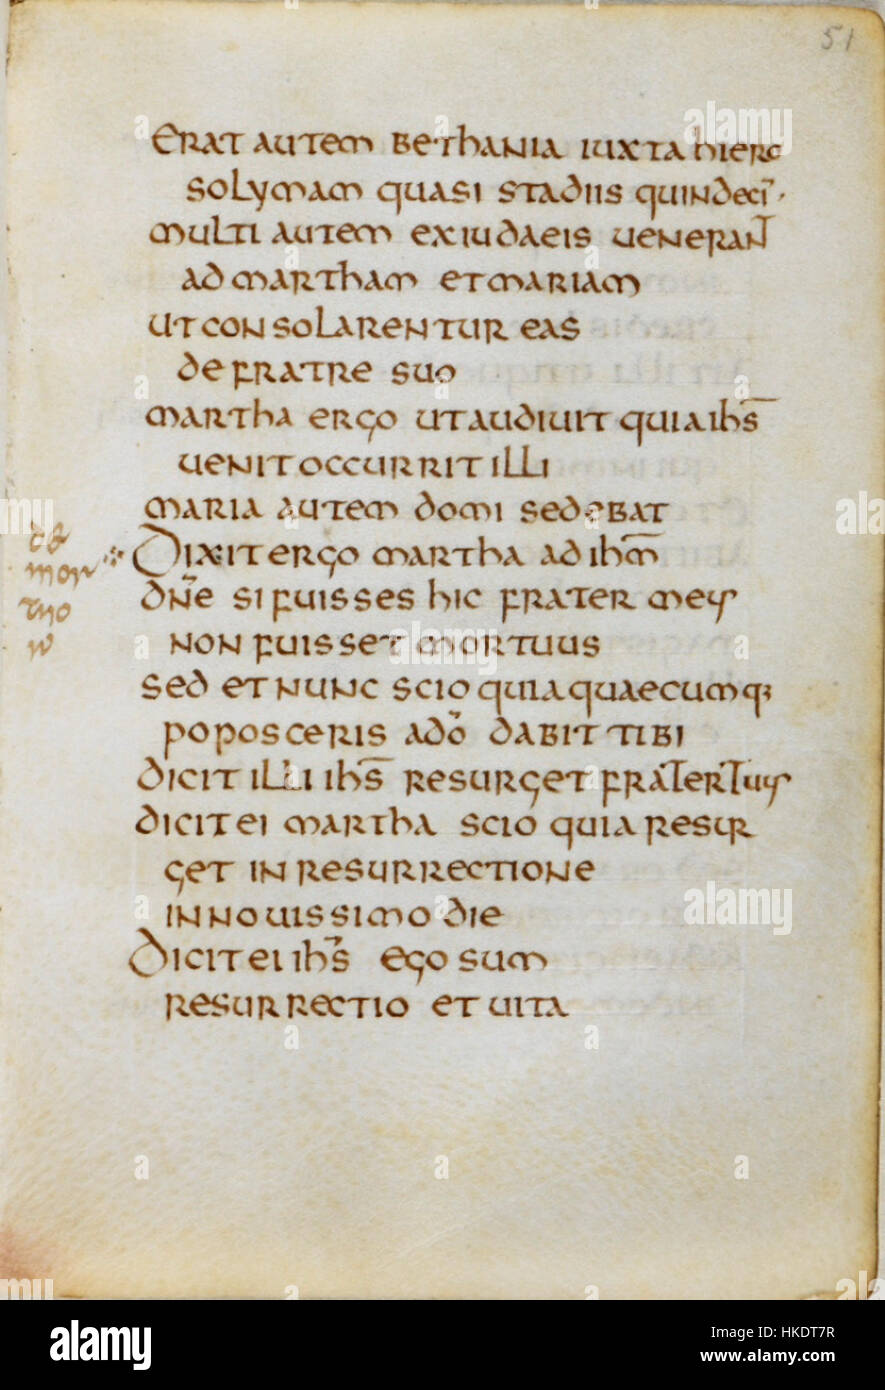 51
Erat autem bethania iuxta hiero
solymam quasi stadiis quindecī·
multi autem ex iudaeis uenerant
ad martham et mariam
ut consolarentur eas
de fratre suo
martha ergo ut audiuit quia ih̅s̅
uenit occurrit illi
maria autem domi sedebat
Dixit ergo martha ad ih̅m̅
dn̅e si fuisses hic frater meus
non fuisset mortuus
sed et nunc scio quia quaecumq;
poposceris a dō dabit tibi
dicit illi ih̅s̅ resurget frater tuus
dicit ei martha scio quia resur
get in resurrectione
in nouissimo die
Dicit ei ih̅s̅ ego sum
resurrectio et uita
alamy
Image ID: HKDT7R
www.alamy.com